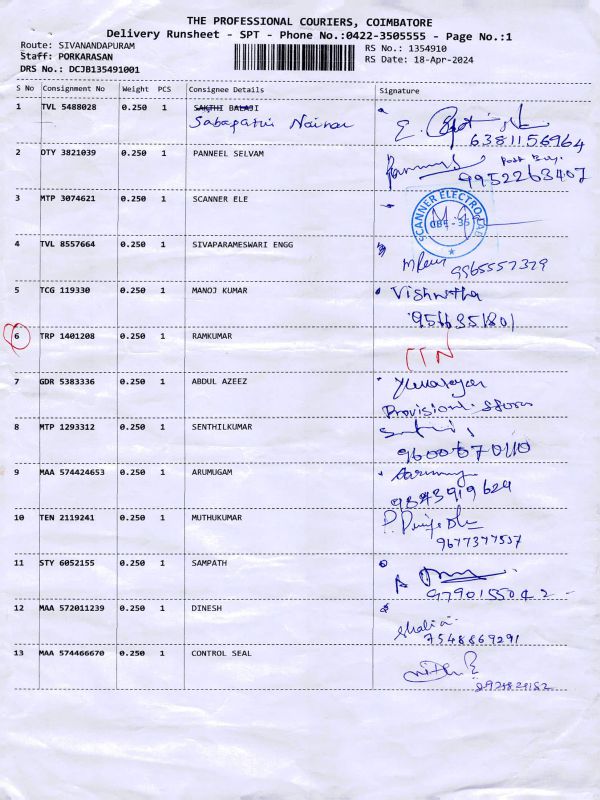 THE PROFESSIONAL COURIERS, COIMBATORE
Delivery Runsheet - SPT - Phone No.:0422-3505555 - Page No.:1
Route: SIVANANDAPURAM RS No.: 1354910
Staff: PORKARASAN RS Date: 18-Apr-2024
DRS No.: DCJB135491001
S No Consignment No Weight PCS Consignee Details Signature
1 TVL 5488028 0.250 1 SAKTHI BALAJI
Sabapathi Nainar
6381156964
2 DTY 3821039 0.250 1 PANNEEL SELVAM
9952263407
3 MTP 3074621 0.250 1 SCANNER ELE
SCANNER ELECTRO LAB
CBE - 35
4 TVL 8557664 0.250 1 SIVAPARAMESWARI ENGG
9965557379
5 TCG 119330 0.250 1 MANOJ KUMAR Vishwtha
6 TRP 1401208 0.250 1 RAMKUMAR
7 GDR 5383336 0.250 1 ABDUL AZEEZ
Provisional Stores
8 MTP 1293312 0.250 1 SENTHILKUMAR
9600670110
9 MAA 574424653 0.250 1 ARUMUGAM
9843919629
10 TEN 2119241 0.250 1 MUTHUKUMAR
9677377537
11 STY 6052155 0.250 1 SAMPATH
9790155042
12 MAA 572011239 0.250 1 DINESH
Shalia
7548869291
13 MAA 574466670 0.250 1 CONTROL SEAL